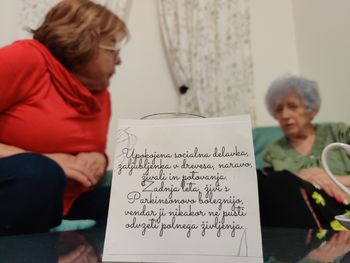 Upokojena socialna delavka,
zaljubljenka v drevesa, naravo,
živali in potovanja.
Zadnja leta živi s
Parkinsonovo boleznijo,
vendar ji nikakor ne pusti
odvzeti polnega življenja.